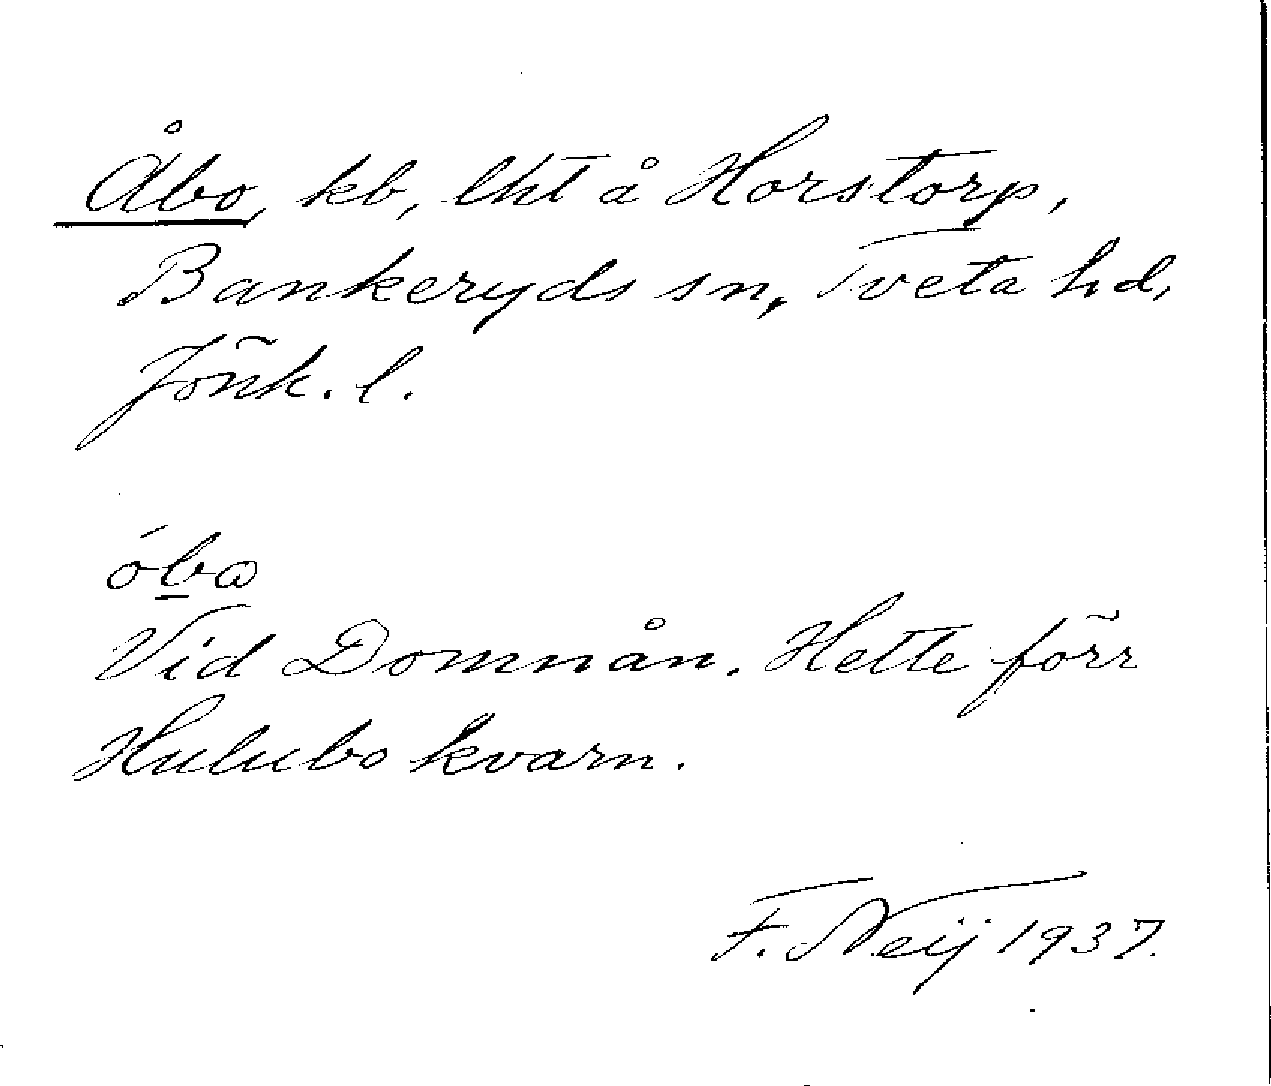 Åbo, kb, lht å Horstorp,
Bankeryds sn, Tveta hd,
Jönk. l.
óba
Vid Domnån. Hette förr
Hulubo kvarn.
F. Neij 1937.